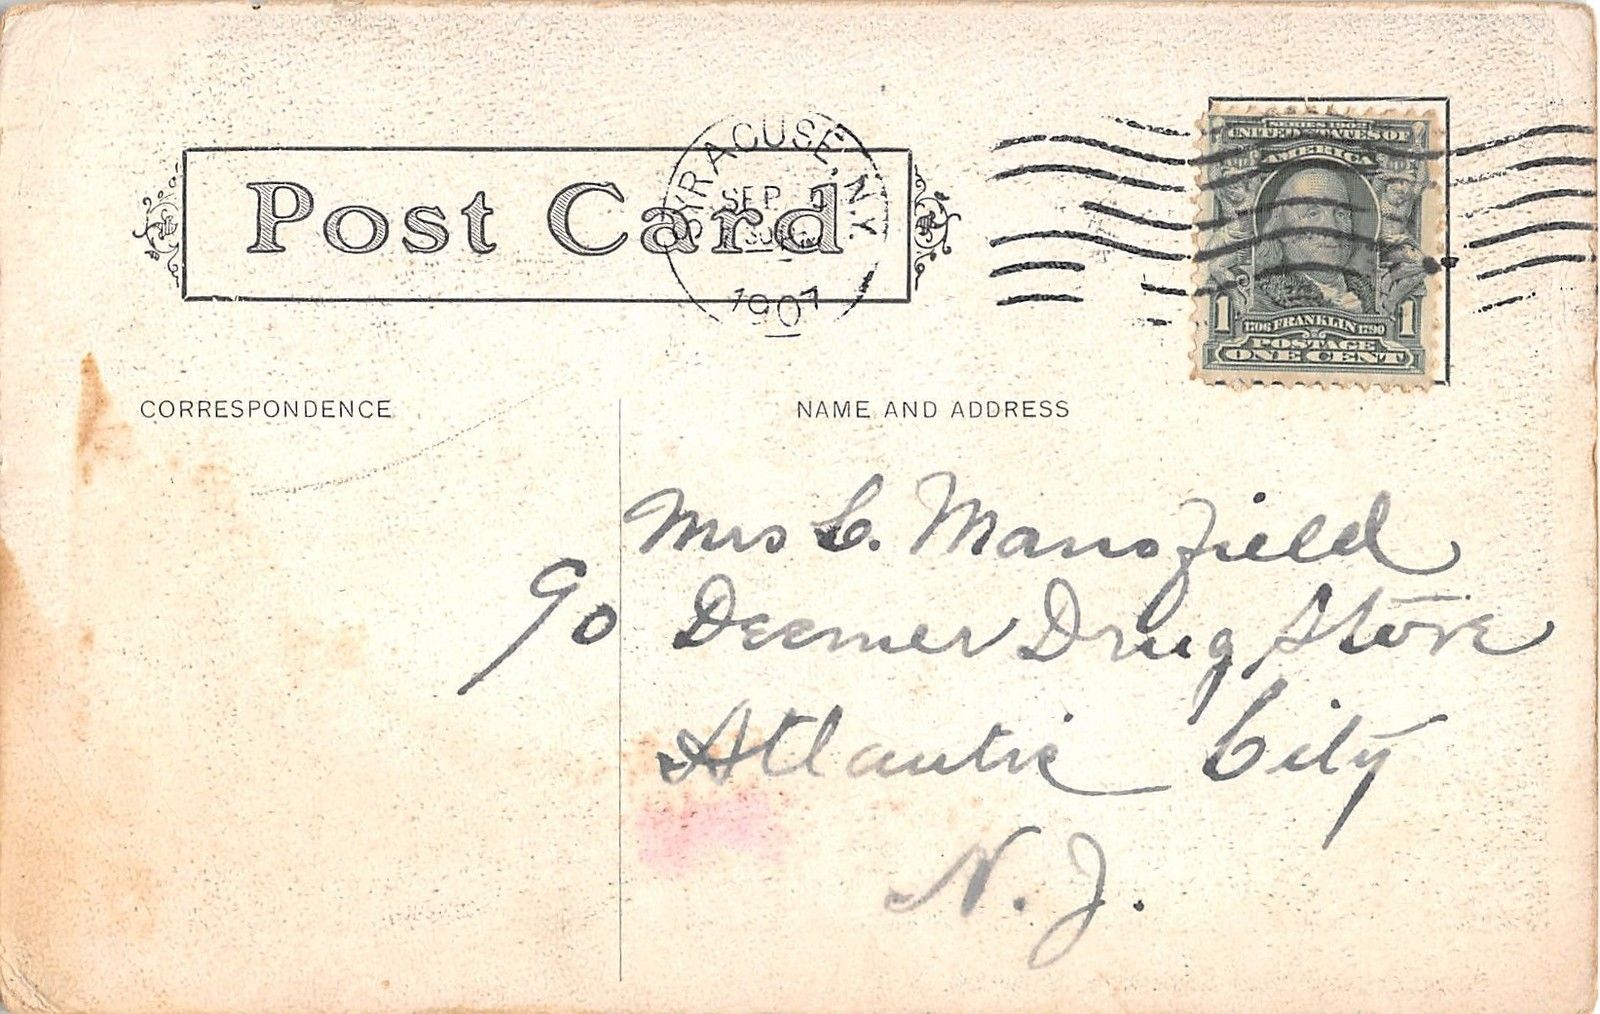 Post Card
SYRACUSE, N.Y.
SEP 1
1907
SERIES 1902
UNITED STATES OF
AMERICA
1 1706 FRANKLIN 1790 1
POSTAGE
ONE CENT
CORRESPONDENCE
NAME AND ADDRESS
Mrs C. Mansfield
c/o Deemer Drug Store
Atlantic City
N. J.